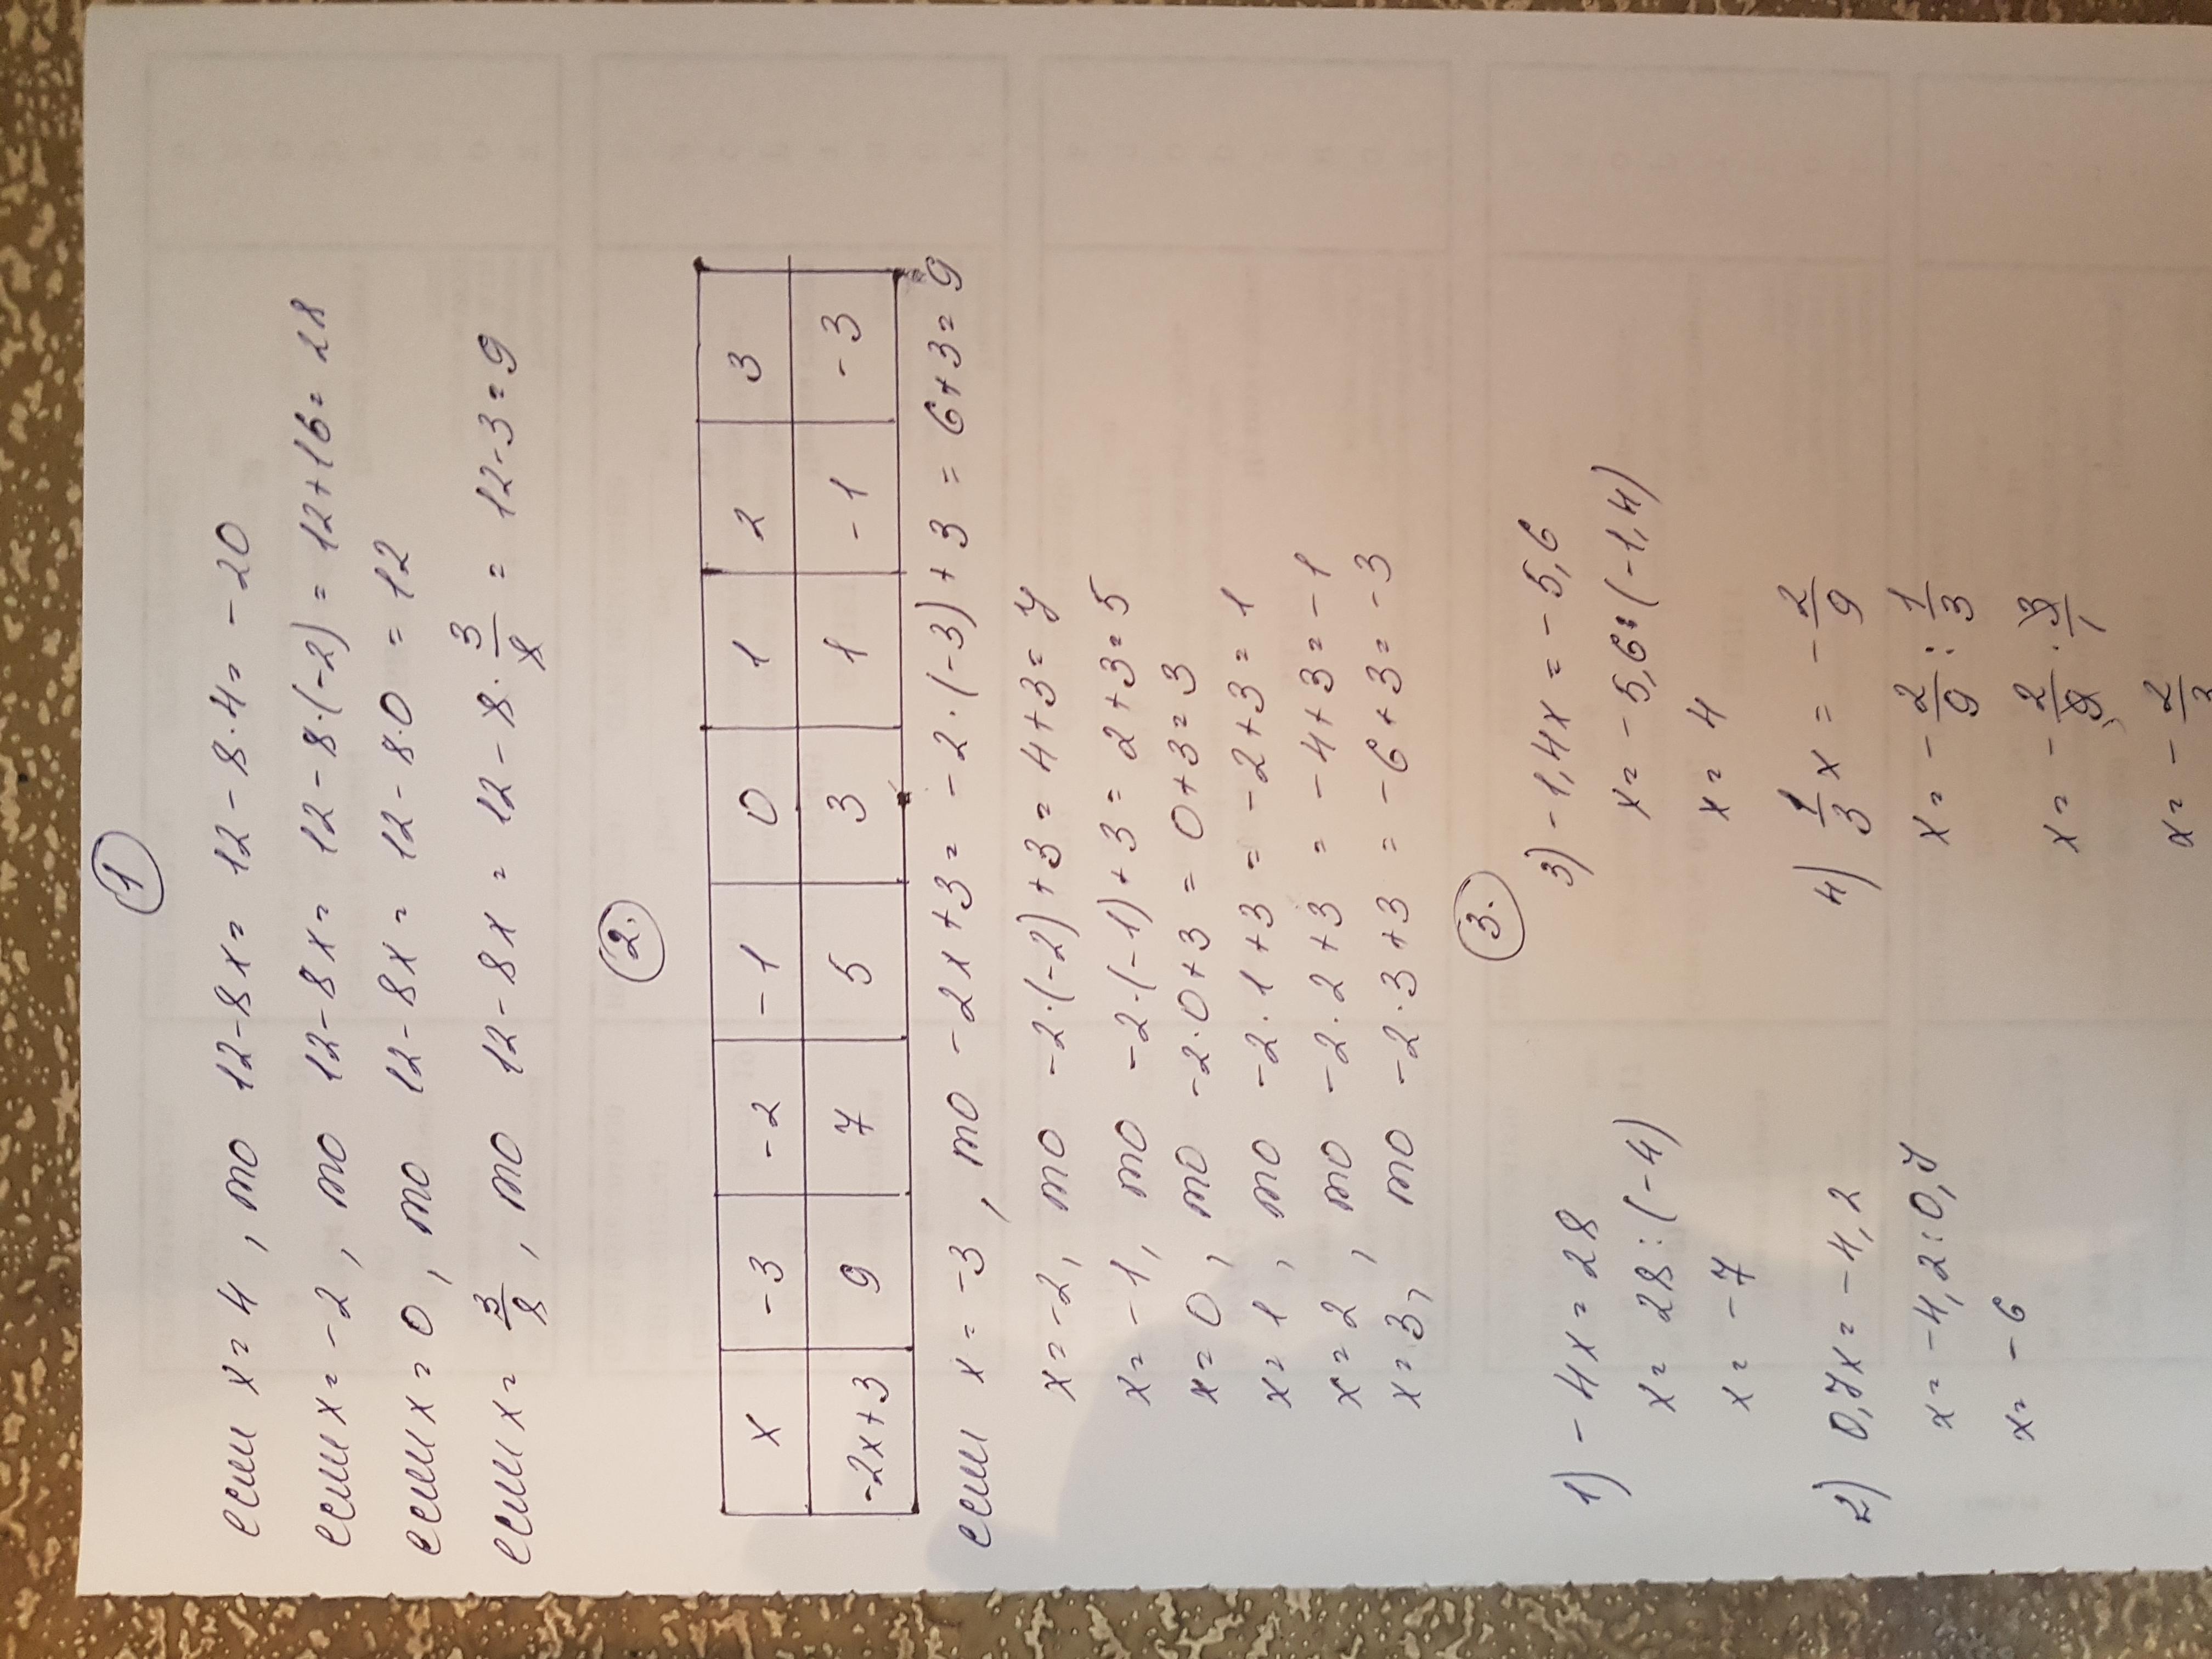 1
если x = 4, то 12-8x = 12-8·4 = -20
если x = -2, то 12-8x = 12-8·(-2) = 12+16 = 28
если x = 0, то 12-8x = 12-8·0 = 12
если x = 3/8, то 12-8x = 12-8·3/8 = 12-3=9
2.
x -3 -2 -1 0 1 2 3
-2x+3 9 7 5 3 1 -1 -3
если x = -3, то -2x+3 = -2·(-3)+3 = 6+3=9
x=-2, то -2·(-2)+3 = 4+3=7
x=-1, то -2·(-1)+3=2+3=5
x=0, то -2·0+3 = 0+3=3
x=1, то -2·1+3 = -2+3=1
x=2, то -2·2+3 = -4+3=-1
x=3, то -2·3+3 = -6+3=-3
3.
1) -4x=28
x=28:(-4)
x=-7
2) 0,7x=-4,2
x=-4,2:0,7
x=-6
3) -1,4x=-5,6
x=-5,6:(-1,4)
x=4
4) 1/3 x = -2/9
x = -2/9 : 1/3
x = -2/9 · 3/1
x = -2/3